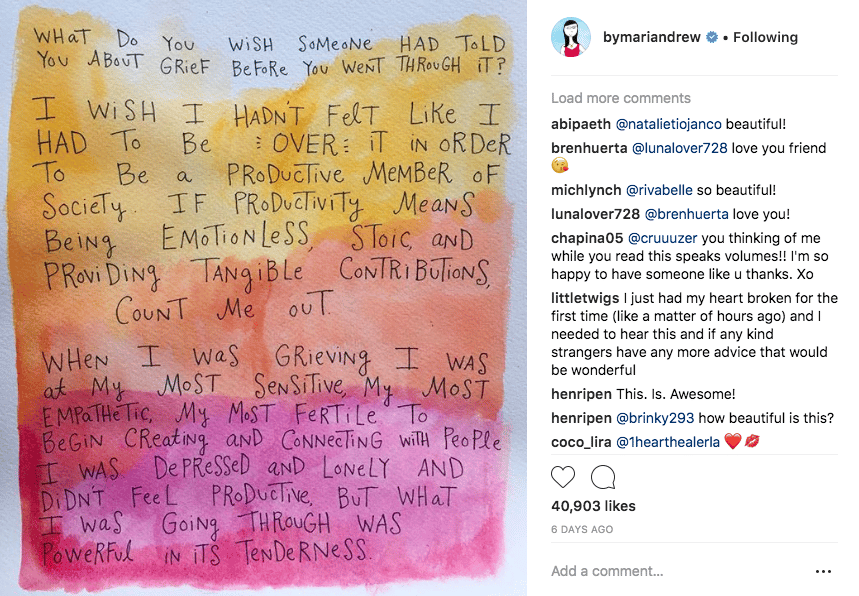 WHAT DO YOU WISH SOMEONE HAD TOLD
YOU ABOUT GRIEF BEFORE YOU WENT THROUGH IT?
I WISH I HADN'T FELT LIKE I
HAD TO BE OVER IT IN ORDER
TO BE A PRODUCTIVE MEMBER OF
SOCIETY. IF PRODUCTIVITY MEANS
BEING EMOTIONLESS, STOIC, AND
PROVIDING TANGIBLE CONTRIBUTIONS,
COUNT ME OUT.
WHEN I WAS GRIEVING I WAS
at MY MOST SENSITIVE, MY MOST
EMPATHETIC, MY MOST FERTILE TO
BEGIN CREATING AND CONNECTING WITH PEOPLE
I WAS DEPRESSED AND LONELY AND
DIDN'T FEEL PRODUCTIVE, BUT WHAT
I WAS GOING THROUGH WAS
POWERFUL IN ITS TENDERNESS.
bymariandrew • Following
Load more comments
abipaeth @natalietiojanco beautiful!
brenhuerta @lunalover728 love you friend
😘
michlynch @rivabelle so beautiful!
lunalover728 @brenhuerta love you!
chapina05 @cruuuzer you thinking of me
while you read this speaks volumes!! I'm so
happy to have someone like u thanks. Xo
littletwigs I just had my heart broken for the
first time (like a matter of hours ago) and I
needed to hear this and if any kind
strangers have any more advice that would
be wonderful
henripen This. Is. Awesome!
henripen @brinky293 how beautiful is this?
coco_lira @1hearthealerla ❤️💋
40,903 likes
6 DAYS AGO
Add a comment...